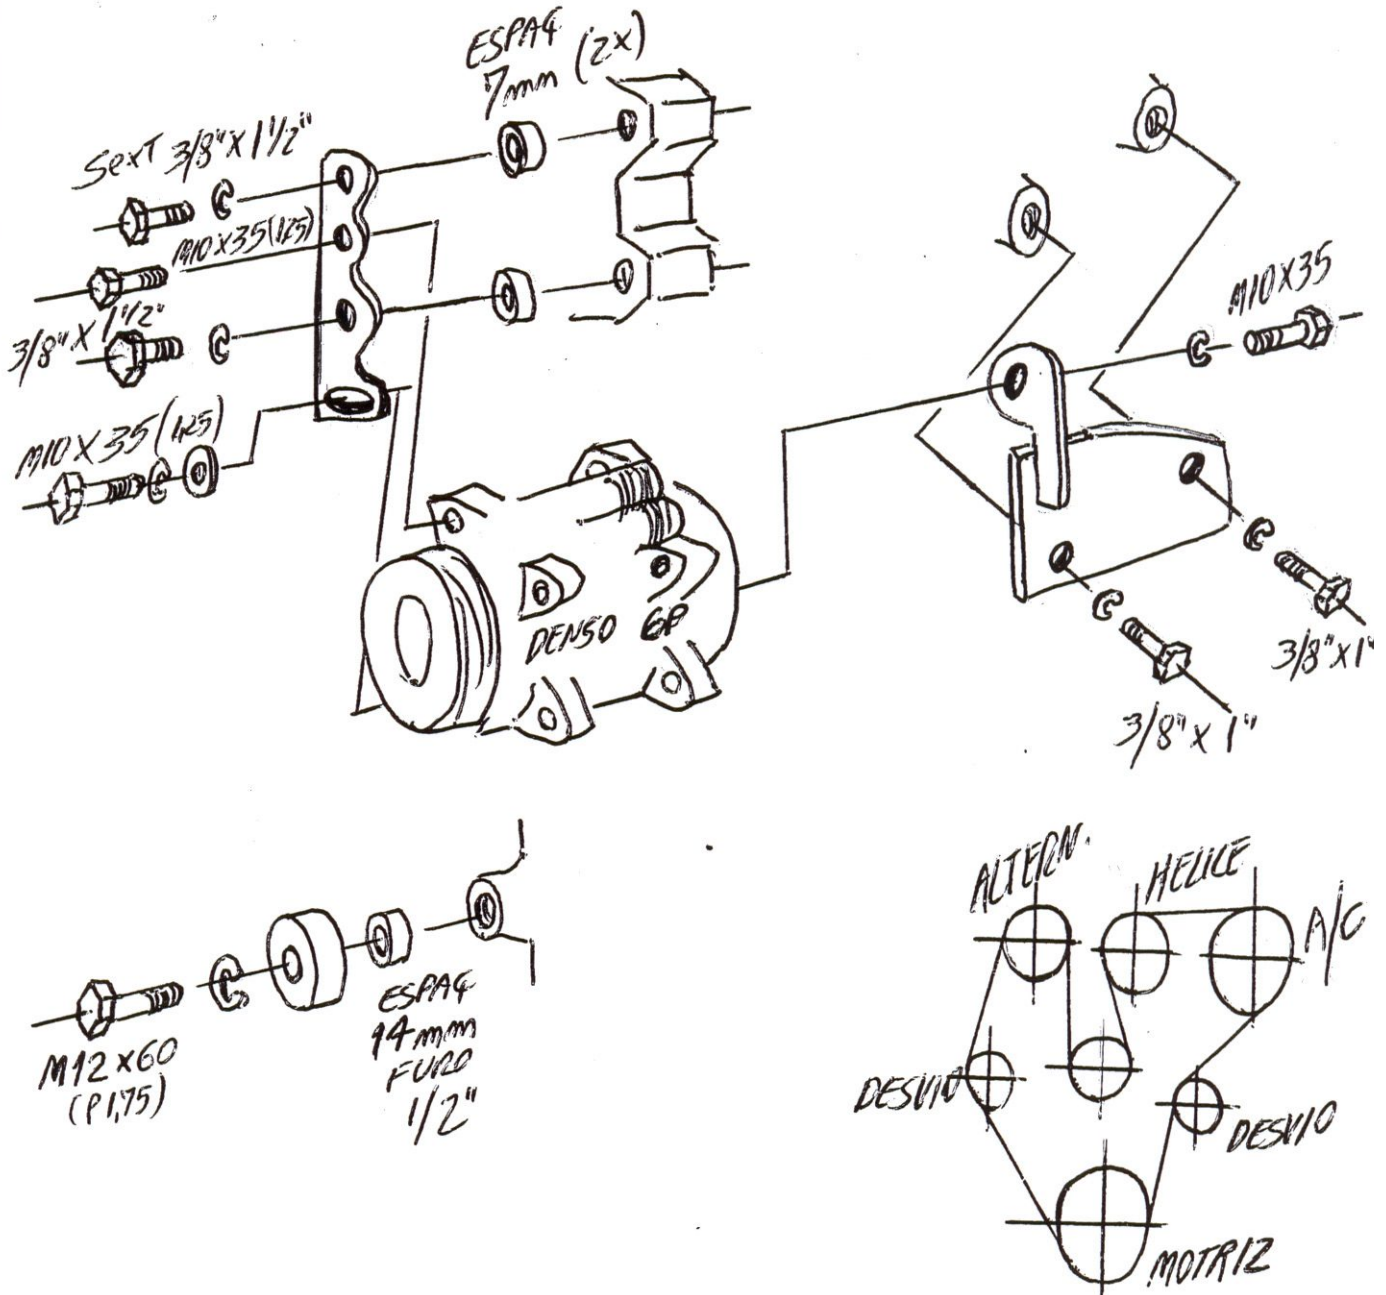 ESPAÇ
7mm (2X)
SexT 3/8"X1 1/2"
M10X35(1,25)
3/8"X 1 1/2"
M10X35(1,25)
M10X35
DENSO 6P
3/8"X1"
3/8"X 1"
M12X60
(P1,75)
ESPAÇ
14mm
FURO
1/2"
ALTERN.
HELICE
A/C
DESVIO
DESVIO
MOTRIZ